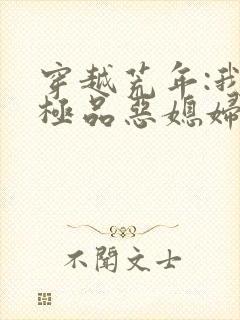 穿越荒年:我
極品惡媳婦
不聞文士